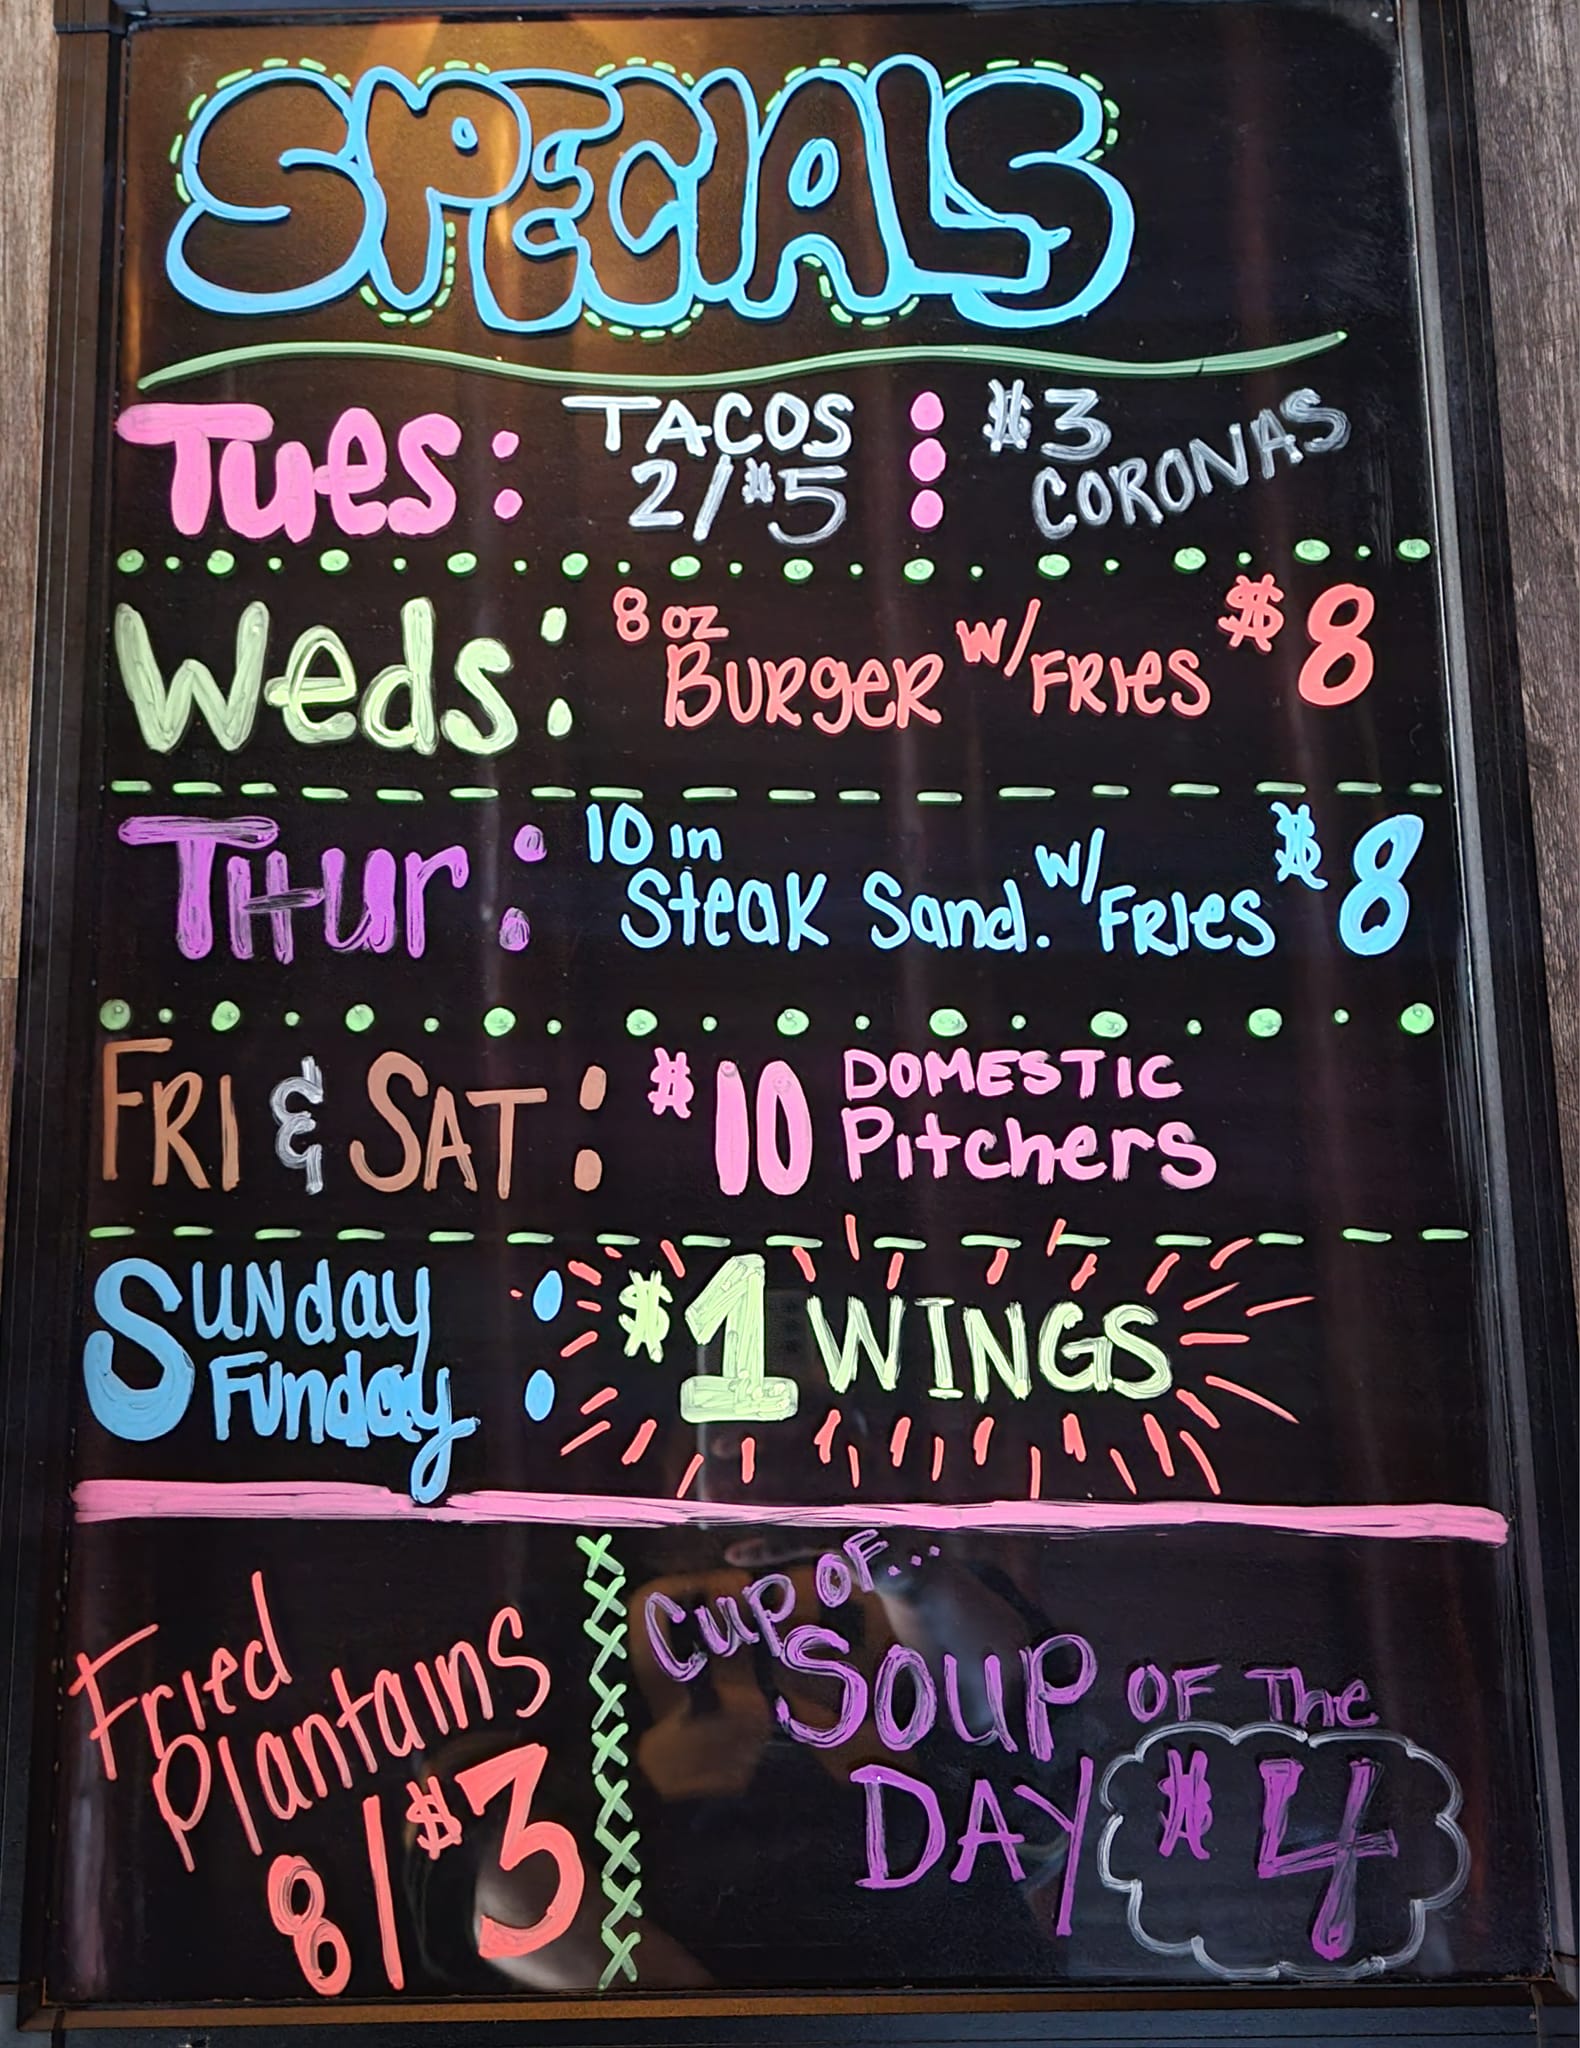 SPECIALS
Tues: TACOS 2/$5 $3 CORONAS
Weds: 8 oz Burger w/Fries $8
Thur: 10 in Steak Sand. w/Fries $8
FRI & SAT: $10 DOMESTIC Pitchers
Sunday Funday: $1 WINGS
Fried
Plantains
8/$3
Cup of...
Soup of The
DAY $4